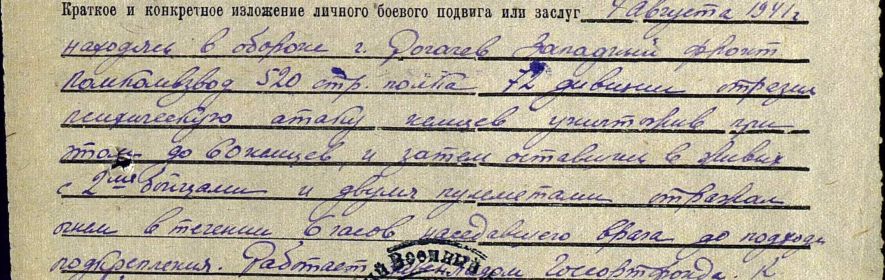 Краткое и конкретное изложение личного боевого подвига или заслуг 4 августа 1941 г
находясь в обороне г. Рогачев Западный фронт
помкомвзвод 520 стр. полка 72 дивизии отразил
психическую атаку немцев уничтожив при
этом до 60 немцев, и затем оставшись в живых
с 2мя бойцами и двумя пулеметами отражал
огнем в течении 6 часов наседавшего врага до подхода
подкрепления. Работает Госсортфонда. К
й Военный